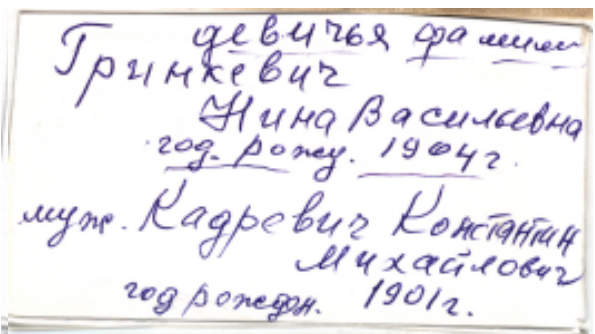 девичья фамили
Гринкевич
Нина Васильевна
год. рожд. 1904г.
муж. Кадревич Константин
Михайлович
год рожден. 1901г.